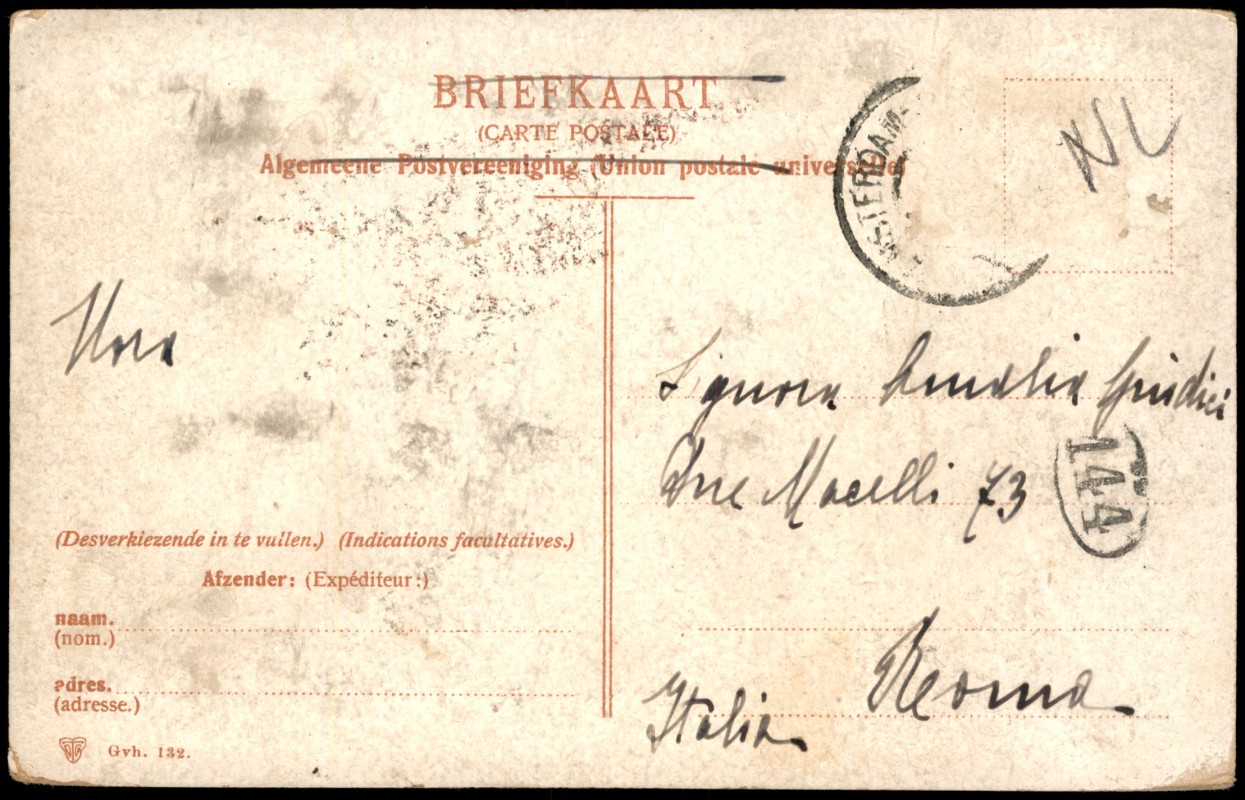 BRIEFKAART
(CARTE POSTALE)
Algemeene Postvereeniging (Union postale universelle)
AMSTERDAM
NL
Signora Amalia Giudici
Due Macelli 73
144
Roma
Italia
(Desverkiezende in te vullen.) (Indications facultatives.)
Afzender: (Expéditeur:)
naam.
(nom.)
adres.
(adresse.)
Gvh. 132.